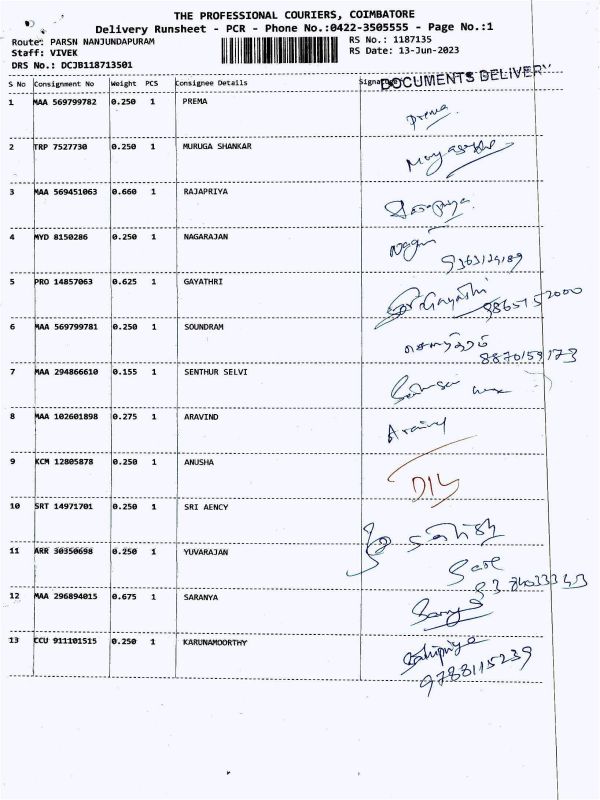 THE PROFESSIONAL COURIERS, COIMBATORE
Delivery Runsheet - PCR - Phone No.:0422-3505555 - Page No.:1
Route: PARSN NANJUNDAPURAM RS No.: 1187135
Staff: VIVEK RS Date: 13-Jun-2023
DRS No.: DCJB118713501
S No Consignment No Weight PCS Consignee Details Signature DOCUMENTS DELIVERY
1 MAA 569799782 0.250 1 PREMA Prema
2 TRP 7527730 0.250 1 MURUGA SHANKAR
3 MAA 569451063 0.660 1 RAJAPRIYA
4 MYD 8150286 0.250 1 NAGARAJAN
5 PRO 14857063 0.625 1 GAYATHRI Gayathri
9865152000
6 MAA 569799781 0.250 1 SOUNDRAM சௌந்திரம்
8870159173
7 MAA 294866610 0.155 1 SENTHUR SELVI
8 MAA 102601898 0.275 1 ARAVIND Aravind
9 KCM 12805878 0.250 1 ANUSHA D/L
10 SRT 14971701 0.250 1 SRI AENCY
11 ARR 30350698 0.250 1 YUVARAJAN
12 MAA 296894015 0.675 1 SARANYA
13 CCU 911101515 0.250 1 KARUNAMOORTHY
9788115239